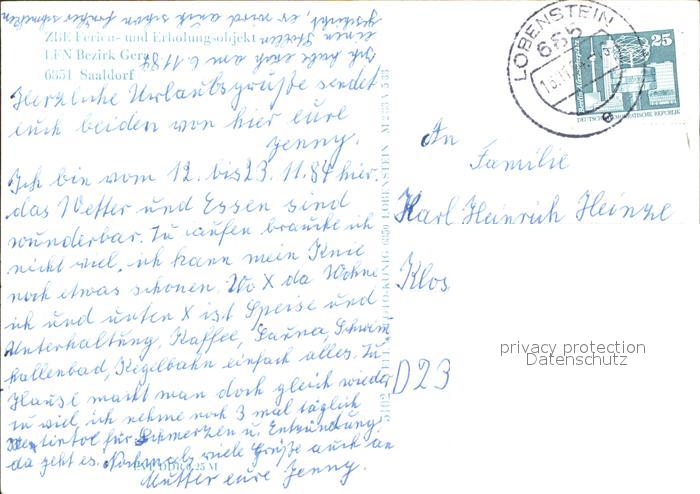 Ich habe euch am 6.11.84
einen Stollen
geschickt, er wird auch schon früher schmecken
ZBE Ferien- und Erholungsobjekt
LFN Bezirk Gera
6851 Saaldorf
Herzliche Urlaubsgrüße sendet
euch beiden von hier eure
Jenny.
Ich bin vom 12. bis 23. 11. 84 hier.
das Wetter und Essen sind
wunderbar. Zu laufen brauche ich
nicht viel, ich kann mein Knie
noch etwas schonen. Wo X da Wohne
ich und unten X ist Speise und
Unterhaltung, Kaffee, Sauna, Schwim
hallenbad, Kegelbahn einfach alles. Zu
Hause macht man doch gleich wieder
zu viel, ich nehme noch 3 mal täglich
für Schmerzen u. Entzündung
da geht es. Nochmals viele Grüße auch an
Mutter eure Jenny.
FOTO-KÖNIG 6850 LOBENSTEIN M 2/83 N 5/83
LOBENSTEIN
685
e
25
DEUTSCHE DEMOKRATISCHE REPUBLIK
An
Familie
Karl Heinrich Heinze
Klos
D 23
privacy protection
Datenschutz